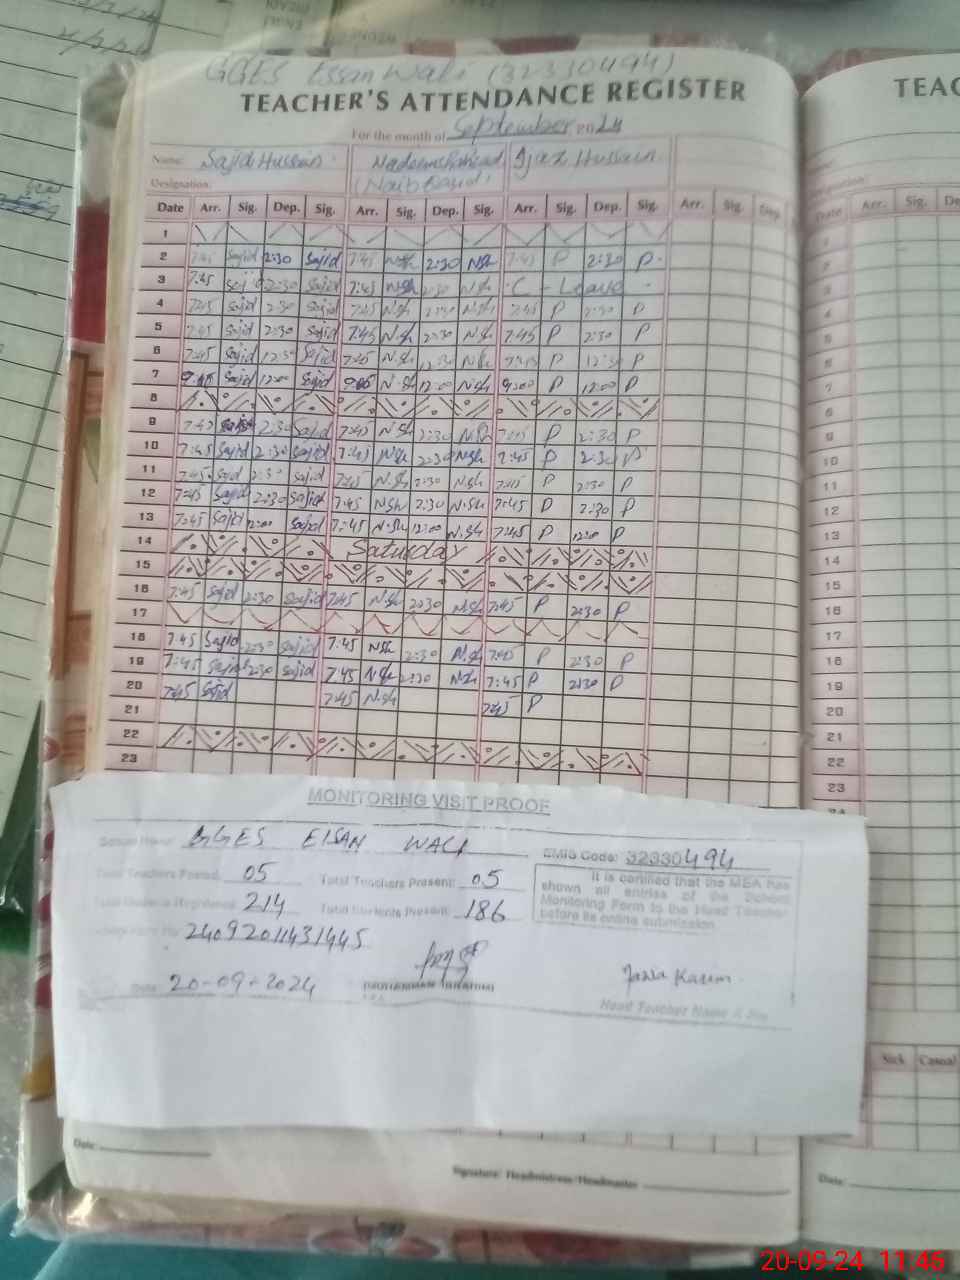 GGES Essan Wali (32330494)
TEACHER'S ATTENDANCE REGISTER
For the month of September 2024
Name: Sajid Hussain Ijaz Hussain
Designation: (Naib Qasid)
Date Arr. Sig. Dep. Sig. Arr. Sig. Dep. Sig. Arr. Sig. Dep. Sig. Arr. Sig. Dep.
1
2 7:45 Sajid 2:30 Sajid 7:45 N.sh 2:30 N.sh 7:45 P 2:30 P
3 7:45 Sajid 2:30 Sajid 7:45 N.sh 2:30 N.sh C - Leave
4 7:45 Sajid 2:30 Sajid 7:45 N.sh 2:30 N.sh 7:45 P 2:30 P
5 7:45 Sajid 2:30 Sajid 7:45 N.sh 2:30 N.sh 7:45 P 2:30 P
6 7:45 Sajid 12:30 Sajid 7:45 N.sh 12:30 N.sh 7:45 P 12:30 P
7 Sajid 12:00 Sajid N.sh 12:00 N.sh 9:00 P 12:00 P
8
9 7:45 Sajid 2:30 Sajid 7:45 N.sh 2:30 N.sh 7:45 P 2:30 P
10 7:45 Sajid 2:30 Sajid 7:45 N.sh 2:30 N.sh 7:45 P 2:30 P
11 7:45 Sajid 2:30 Sajid 7:45 N.sh 2:30 N.sh 7:45 P 2:30 P
12 7:45 Sajid 2:30 Sajid 7:45 N.sh 2:30 N.sh 7:45 P 2:30 P
13 7:45 Sajid 12:00 Sajid 7:45 N.sh 12:00 N.sh 7:45 P 12:00 P
14 Saturday
15
16 7:45 Sajid 2:30 Sajid 7:45 N.sh 2:30 N.sh 7:45 P 2:30 P
17
18 7:45 Sajid 2:30 Sajid 7:45 N.sh 2:30 N.sh 7:45 P 2:30 P
19 7:45 Sajid 2:30 Sajid 7:45 N.sh 2:30 N.sh 7:45 P 2:30 P
20 7:45 Sajid 7:45 N.sh 7:45 P
21
22
23
MONITORING VISIT PROOF
School Name: GGES EISAN WALI EMIS Code: 32330494
Total Teachers Posted: 05 Total Teachers Present: 05
It is certified that the MEA has shown all entries of the School Monitoring Form to the Head Teacher before its online submission
Total Students Registered: 214 Total Students Present: 186
24092011431445
Date 20-09-2024
Head Teacher Name & Sig
Date:
Signature: Headmistress/Headmaster
TEAC
Date Arr. Sig. De
1
2
3
4
5
6
7
8
9
10
11
12
13
14
15
16
17
18
19
20
21
22
23
Sick Casual
Date:
20-09-24 11:46